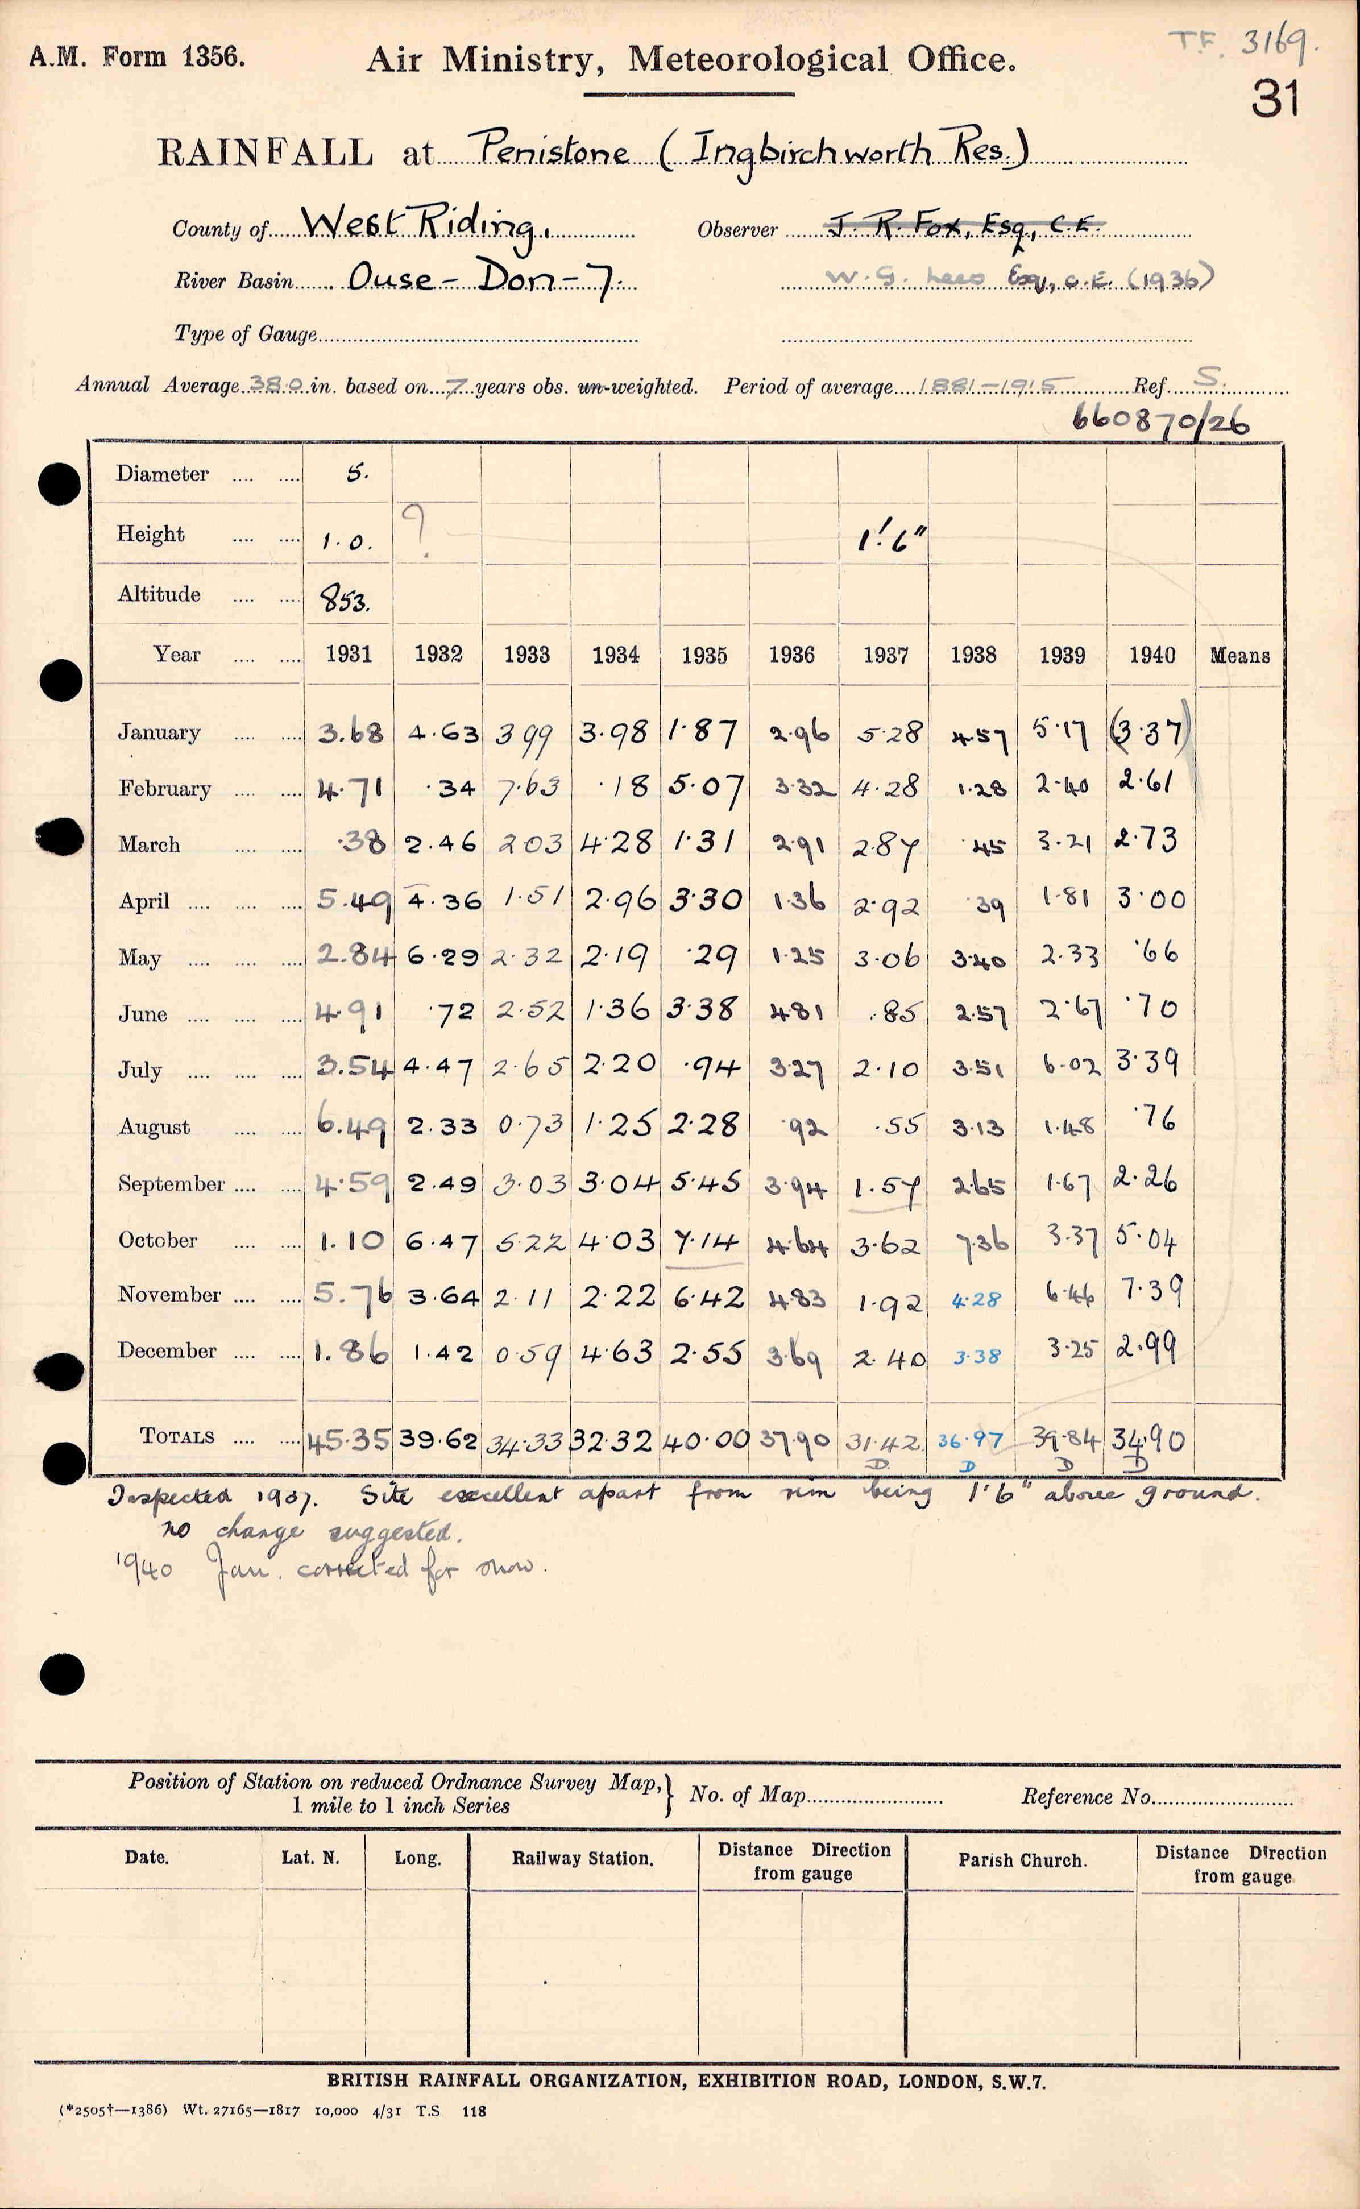 T.F. 3169.
A.M. Form 1356. Air Ministry, Meteorological Office.
31
RAINFALL at Penistone (Ingbirchworth Res.)
County of West Riding. Observer J. R. Fox, Esq., C.E.
River Basin Ouse - Don - 7. W. G. Lees Esq., C.E. (1936)
Type of Gauge
Annual Average 38.0 in. based on 7 years obs. un-weighted. Period of average 1881-1915 Ref S.
660870/26
Diameter .... .... 5.
Height .... .... 1.0. ? 1'.6"
Altitude .... .... 853.
Year .... .... 1931 1932 1933 1934 1935 1936 1937 1938 1939 1940 Means
January .... .... 3.68 4.63 3 99 3.98 1.87 2.96 5.28 4.57 5.17 (3.37)
February .... .... 4.71 .34 7.63 .18 5.07 3.32 4.28 1.28 2.40 2.61
March .... .... .38 2.46 2 03 4.28 1.31 2.91 2.87 .45 3.21 2.73
April .... .... .... 5.49 4.36 1.51 2.96 3.30 1.36 2.92 .39 1.81 3.00
May .... .... .... 2.84 6.29 2.32 2.19 .29 1.25 3.06 3.40 2.33 .66
June .... .... .... 4.91 .72 2.52 1.36 3.38 4.81 .85 2.57 2.67 .70
July .... .... .... 3.54 4.47 2.65 2.20 .94 3.27 2.10 3.51 6.02 3.39
August .... .... 6.49 2.33 0.73 1.25 2.28 .92 .55 3.13 1.48 .76
September .... .... 4.59 2.49 3.03 3.04 5.45 3.94 1.57 2.65 1.67 2.26
October .... .... 1.10 6.47 5.22 4.03 7.14 4.64 3.62 7.36 3.37 5.04
November .... .... 5.76 3.64 2.11 2.22 6.42 4.83 1.92 4.28 6.46 7.39
December .... .... 1.86 1.42 0.59 4.63 2.55 3.69 2.40 3.38 3.25 2.99
TOTALS .... .... 45.35 39.62 34.33 32.32 40.00 37.90 31.42 36.97 39.84 34.90
D D D D
Inspected 1937. Site excellent apart from rim being 1'6" above ground.
no change suggested.
1940 Jan. corrected for snow.
Position of Station on reduced Ordnance Survey Map,} No. of Map Reference No.
1 mile to 1 inch Series
Date. Lat. N. Long. Railway Station. Distance from gauge Direction Parish Church. Distance Direction from gauge
BRITISH RAINFALL ORGANIZATION, EXHIBITION ROAD, LONDON, S.W.7.
(*2505†—1386) Wt. 27165—1817 10,000 4/31 T.S 118